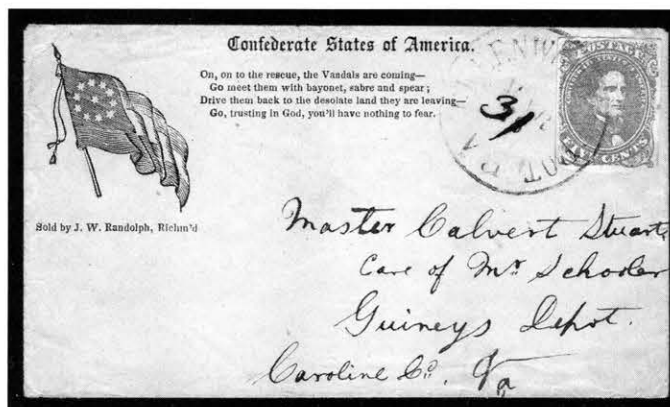 Confederate States of America.
On, on to the rescue, the Vandals are coming—
Go meet them with bayonet, sabre and spear;
Drive them back to the desolate land they are leaving—
Go, trusting in God, you'll have nothing to fear.
Sold by J. W. Randolph, Richm'd
POSTAGE
CONFEDERATE STATES OF AMERICA
FIVE CENTS
31
Master Calvert Stuart
Care of Mr Schooler
Guineys Depot.
Caroline Co. Va